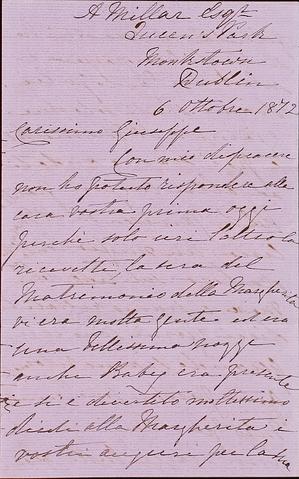 A Millar Esqr
Queen's Park
Monkstown
Dublin
6 Ottobre 1872
Carissimo Giuseppe
Con mio dispiacere
non ho potuto rispondere alla
cara vostra prima oggi
perchè solo ieri l'altro la
ricevetti, la sera del
Matrimonio della Margherita
vi era molta gente ed era
una bellissima nozze
anche Baby era presente
e si è divertito moltissimo
diedi alla Margherita i
vostri auguri per la sua